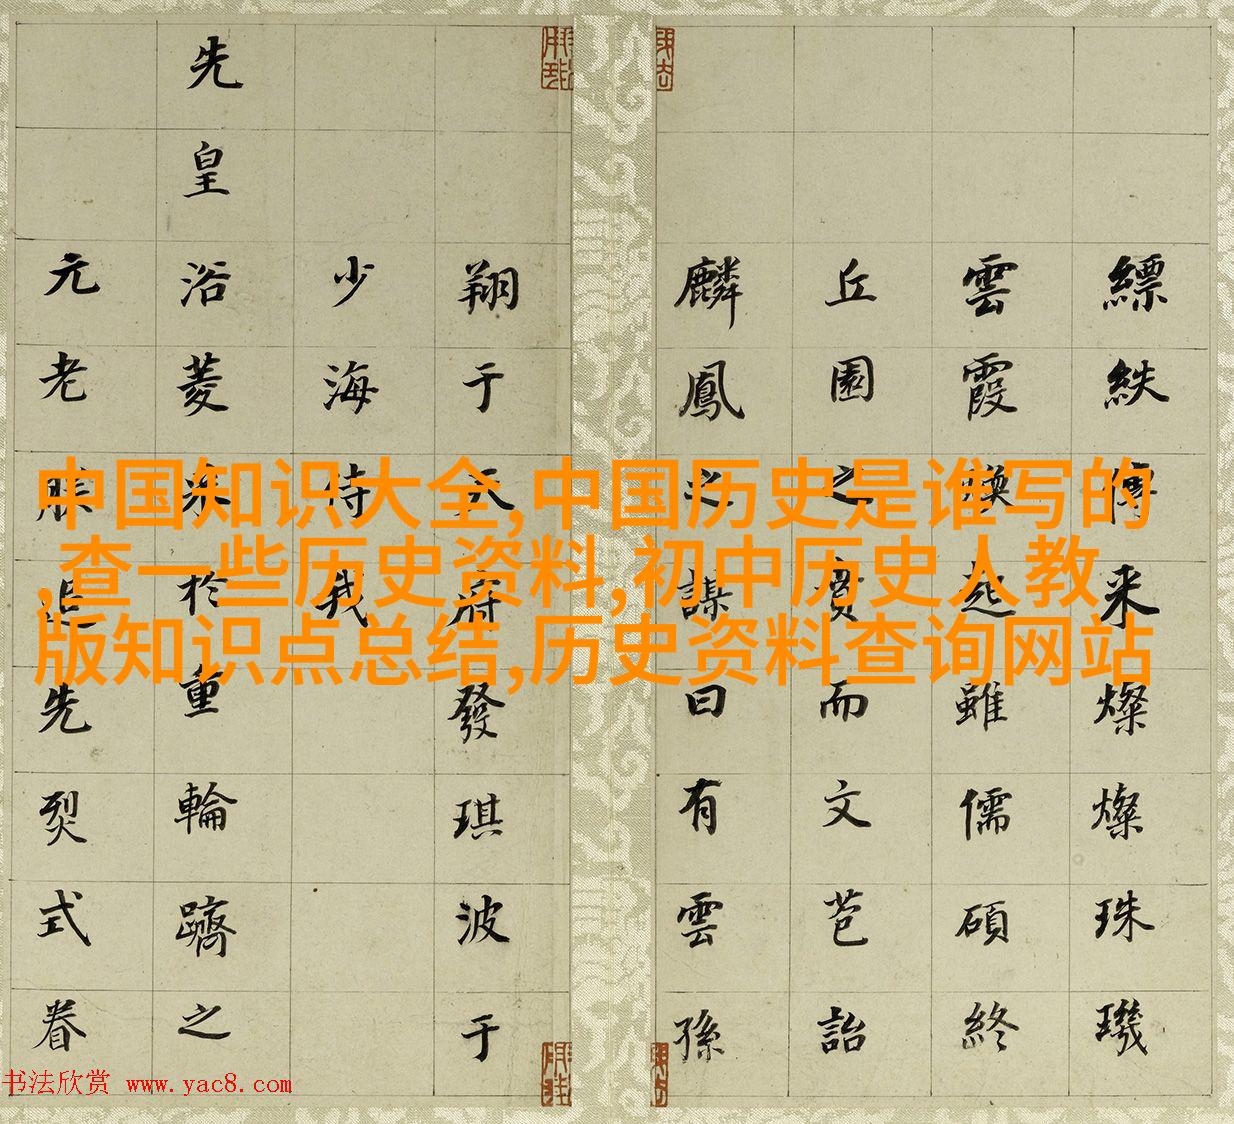 縹紩傳来燦燦珠璣
雲霞起雖儒碩終
丘園之賁而文芭詒
麟鳳之謀曰有雲孫
翔于天府發琪波于
少海侍我
先皇浴菱来於重輪躋之
元老朕追先烈式眷
中国知识大全,中国历史是谁写的
,查一些历史资料,初中历史人教
版知识点总结,历史资料查询网站
书法欣赏 www.yac8.com